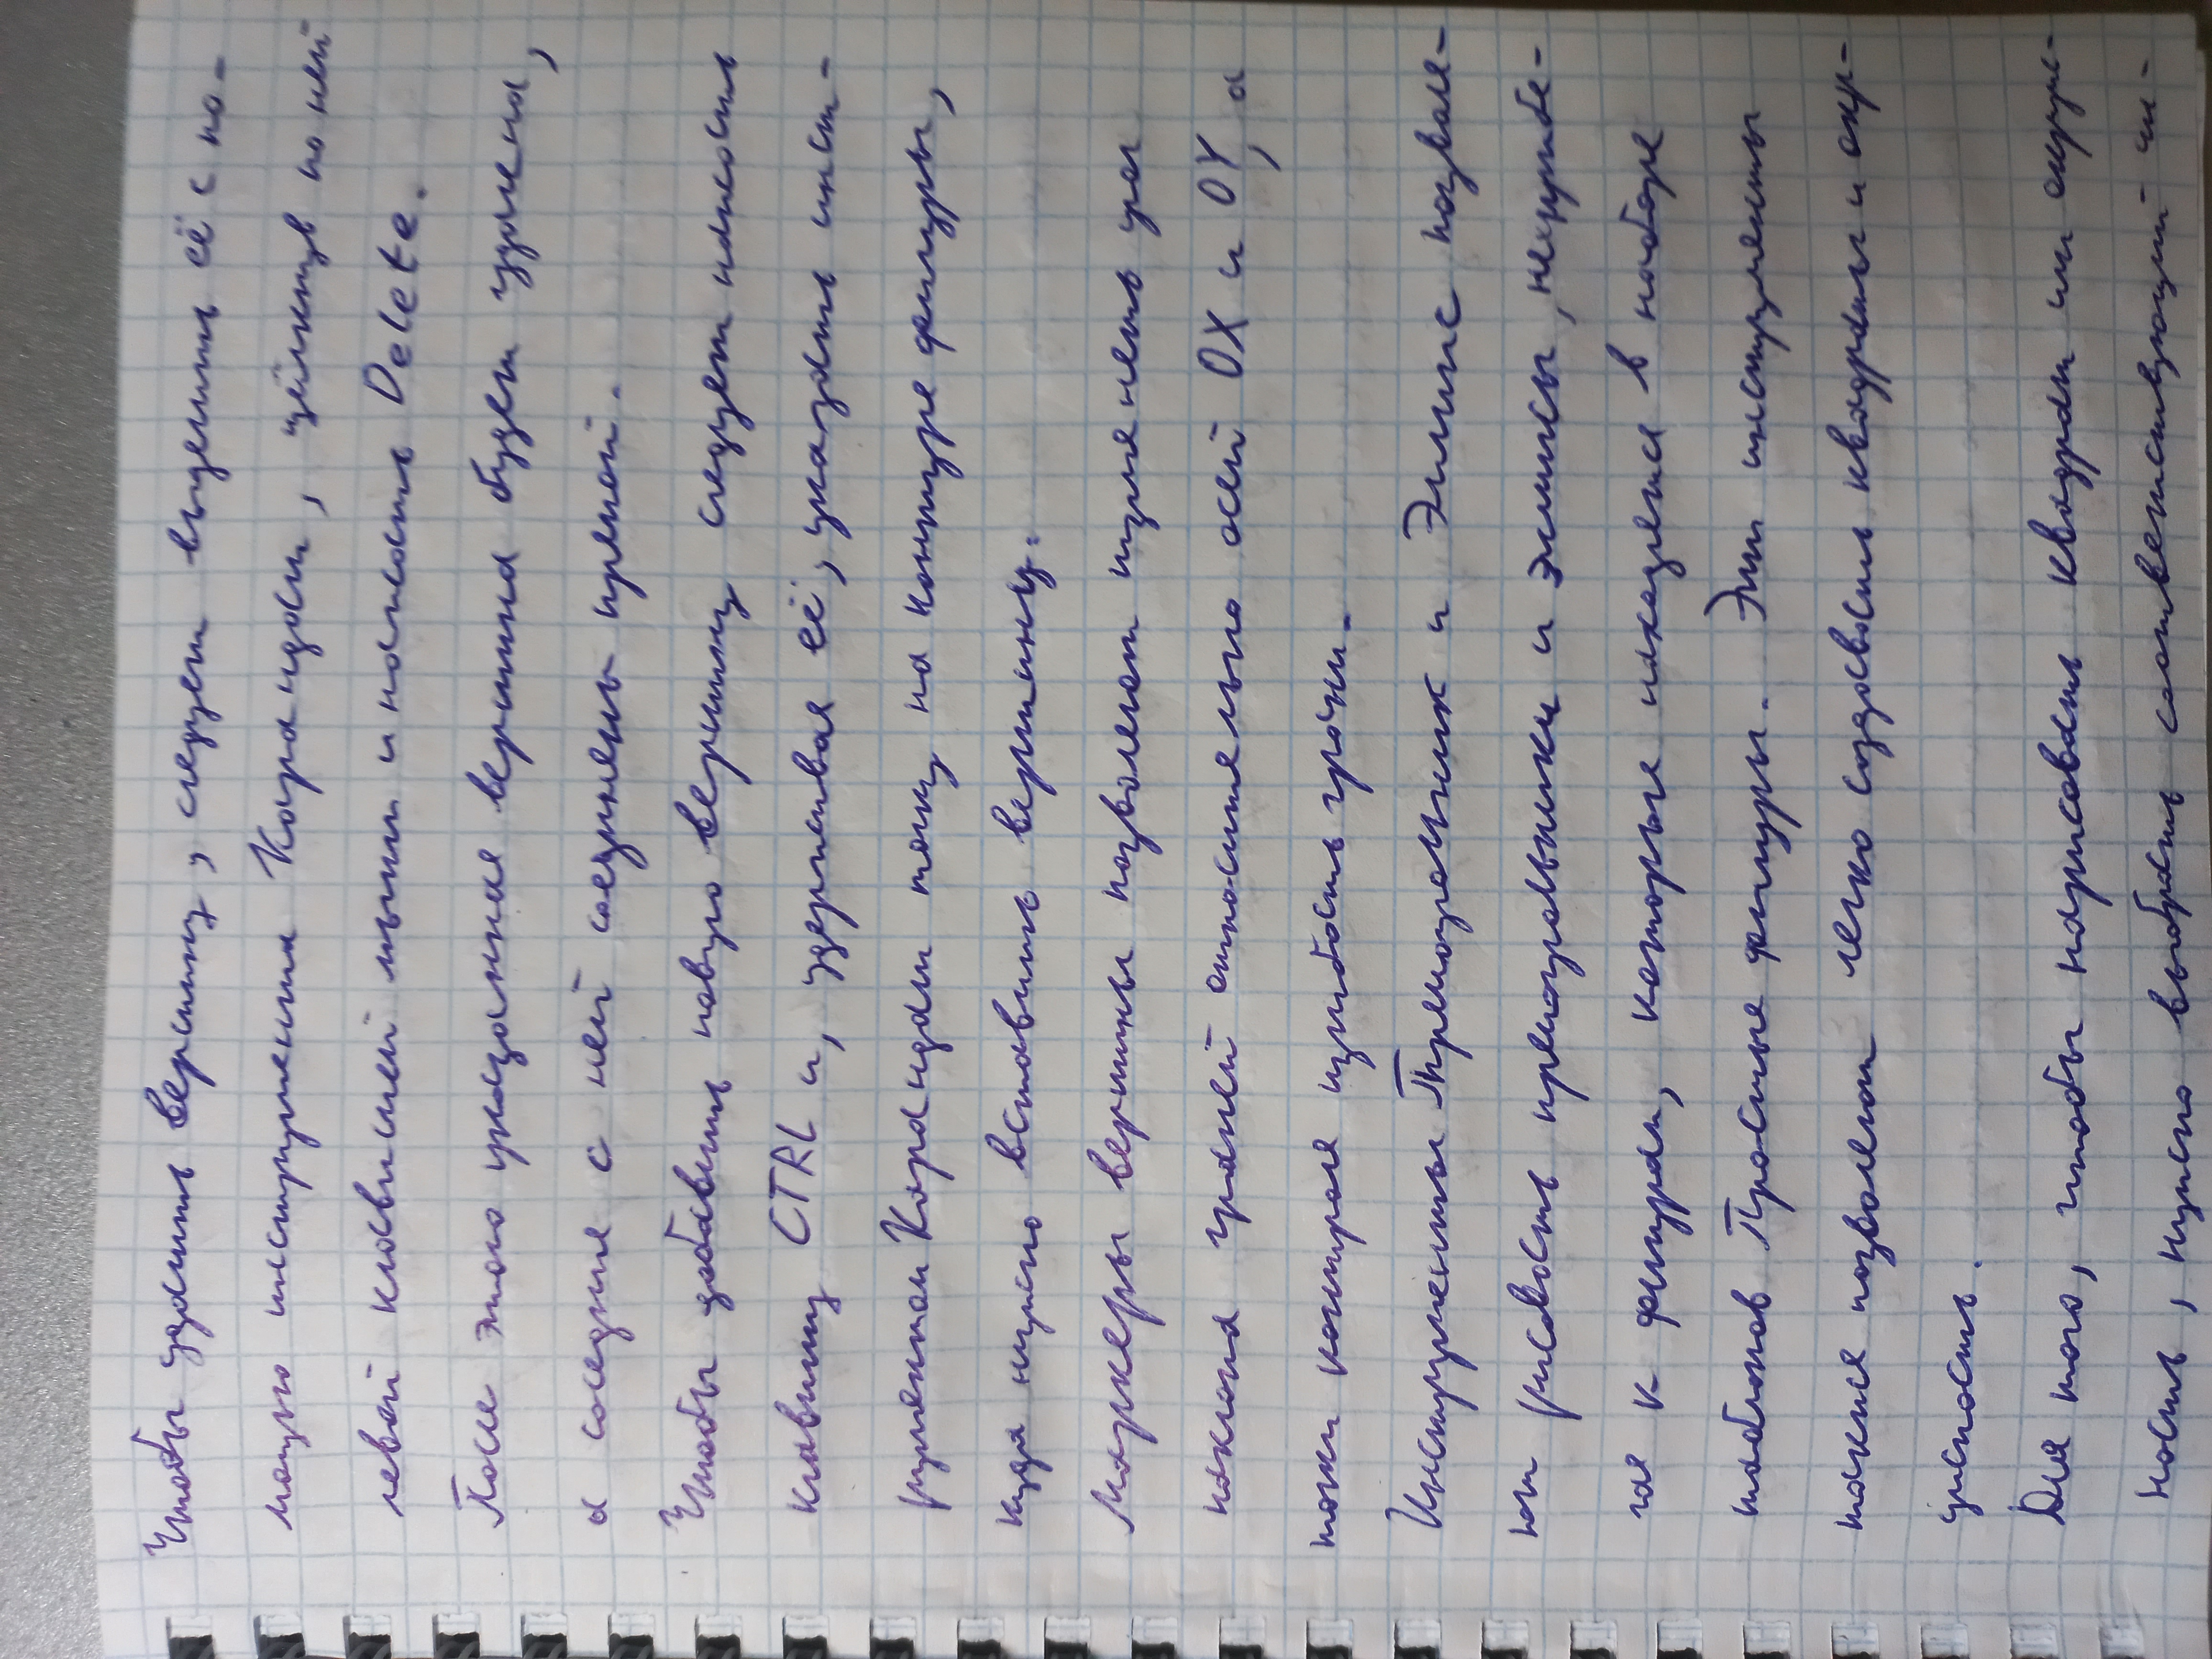 Чтобы удалить вершину, следует выделить её с по-
мощью инструмента Карандаш, щёлкнув по ней
левой клавишей мыши и нажать Delete.
После этого указанная вершина будет удалена,
а соседние с ней соединены прямой.
Чтобы добавить новую вершину следует нажать
клавишу CTRL и, удерживая её, указать инст-
рументом Карандаш точку на контуре фигуры,
куда нужно вставить вершину.
Маркеры вершины позволяют изменять угол
наклона граней относительно осей OX и OY, а
также которая изгибать грани.
Инструменты Прямоугольник и Эллипс позволя-
ют рисовать прямоугольники и эллипсы, не прибе-
гая к фигурам, которые находятся в наборе
шаблонов Простые фигуры. Эти инструменты
также позволяют легко создавать квадраты и окр-
ужность.
Для того, чтобы нарисовать квадрат или окруж-
ность, нужно выбрать соответствующий ин-